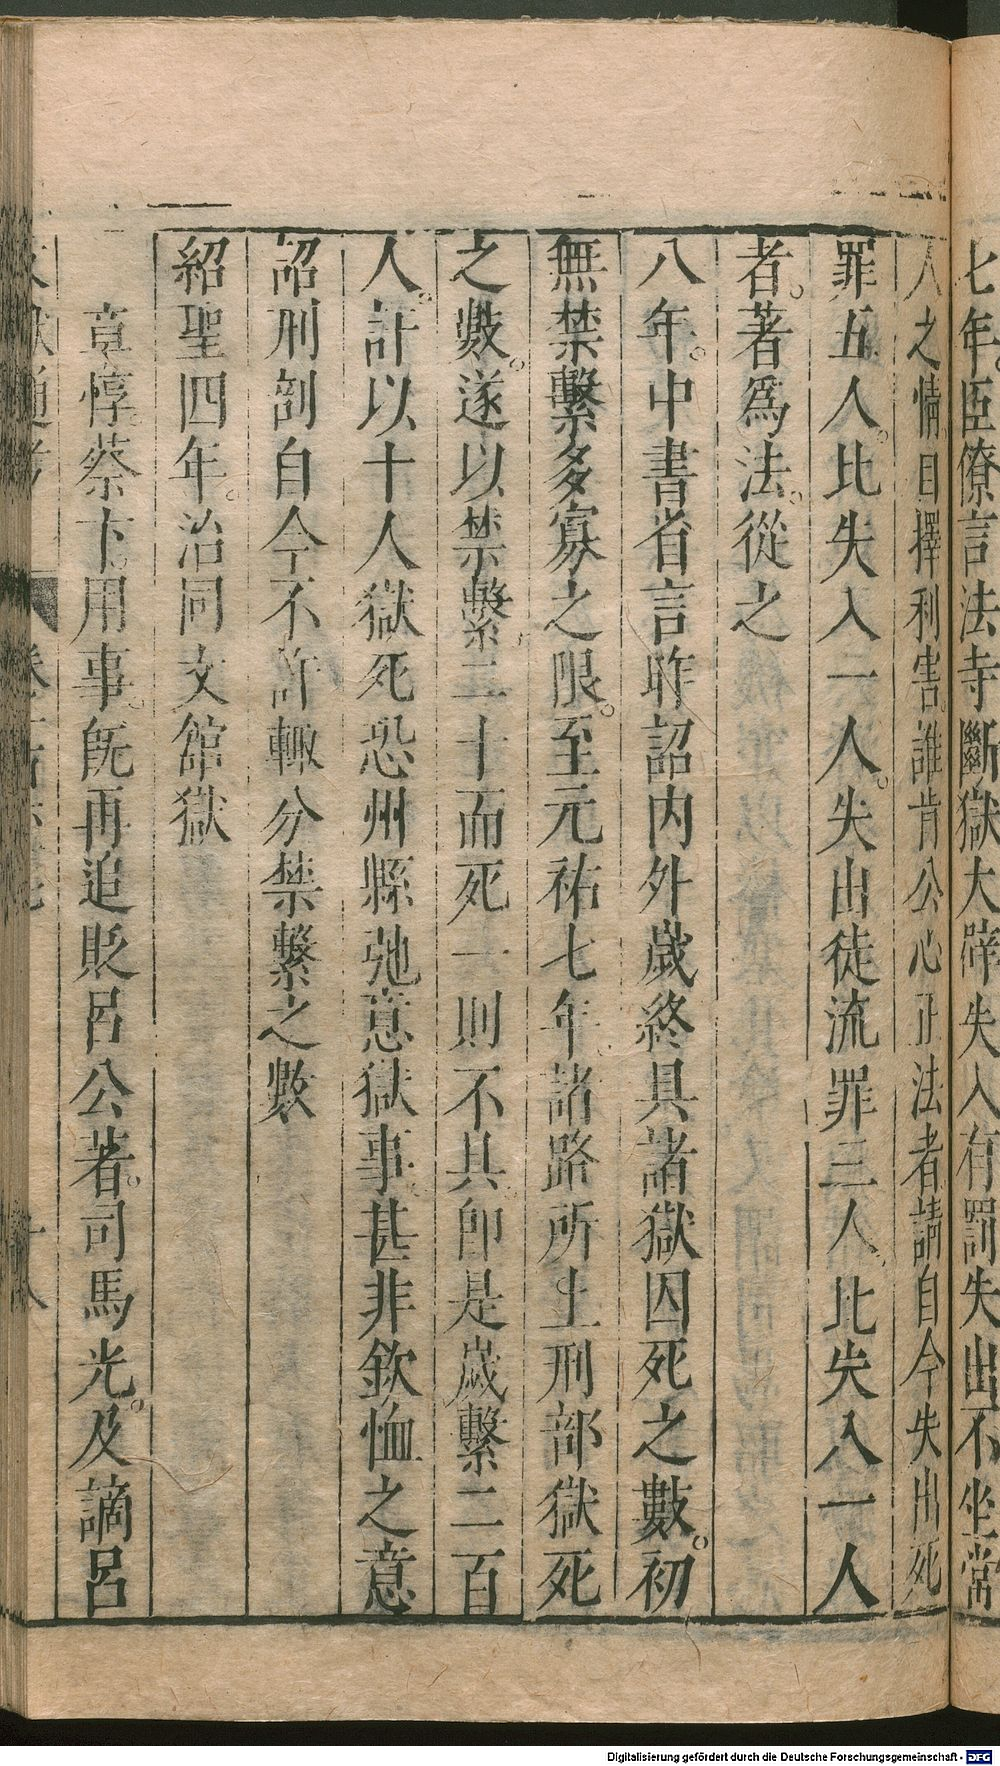 七年。臣僚言法寺斷獄大辟失入有罰失出不坐常
人之情自擇利害。誰肯公心正法者請自今失出死
罪五人。比失入一人。失出徒流罪三人。比失入一人
者。著爲法。從之
八年。中書省言昨詔内外歲終具諸獄囚死之數。初
無禁繫多寡之限。至元祐七年諸路所上刑部獄死
之數。遂以禁繫二十而死一則不具卽是歲繫二百
人。許以十人獄死恐州縣弛意獄事甚非欽恤之意
詔刑部自今不許輙分禁繫之數
紹聖四年。治同文舘獄
章惇。蔡卞。用事。旣再追貶呂公著。司馬光。及謫呂
十八
Digitalisierung gefördert durch die Deutsche Forschungsgemeinschaft - DFG